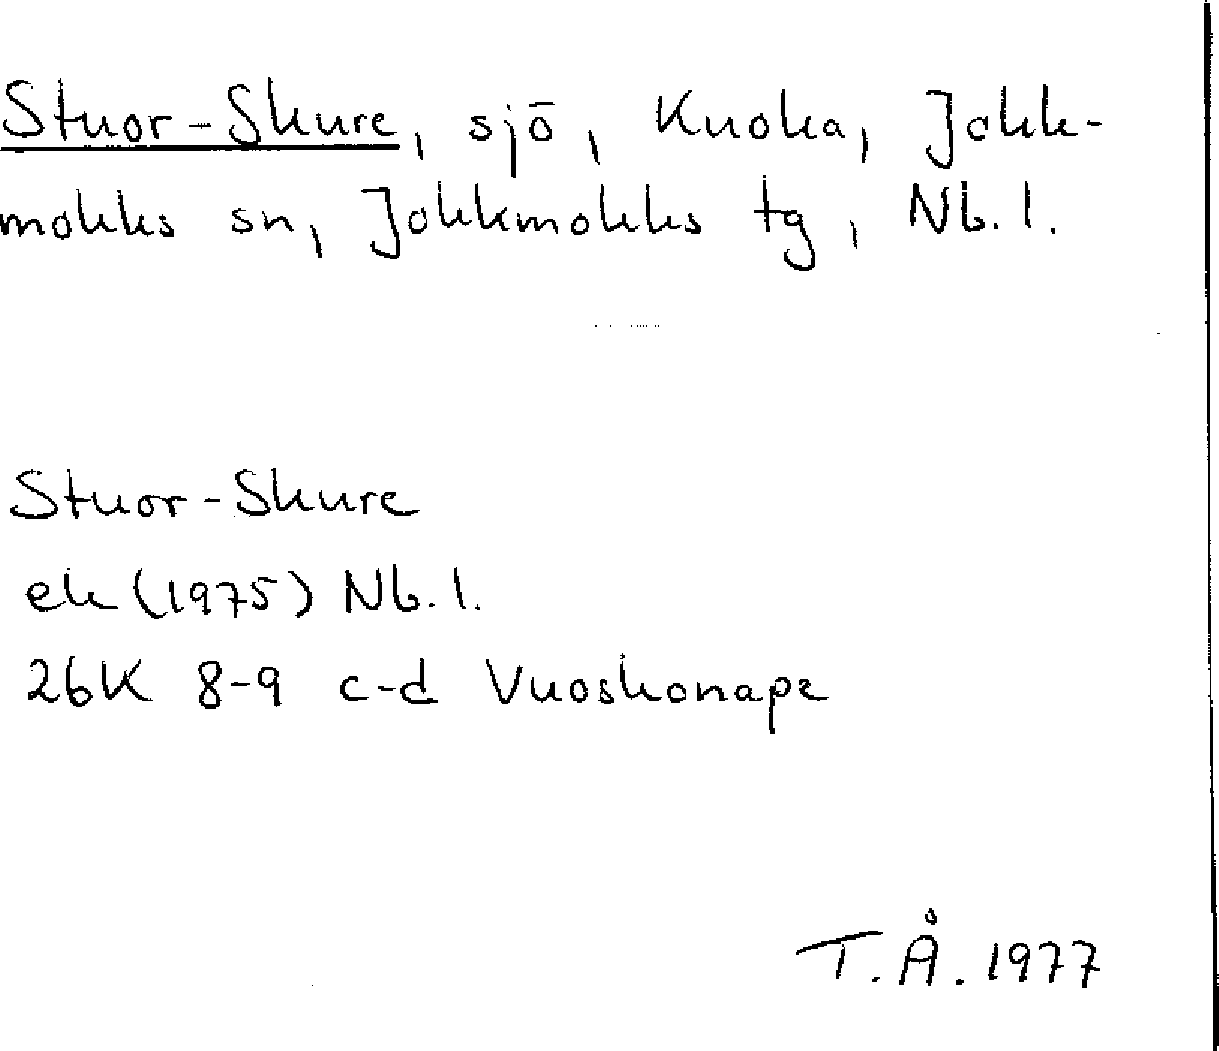 Stuor-Skure, sjö, Kuoka, Jokk-
mokks sn, Jokkmokks tg, Nb. l.
Stuor-Skure
ek (1975) Nb. l.
26K 8-9 c-d Vuoskonape
T.Å. 1977